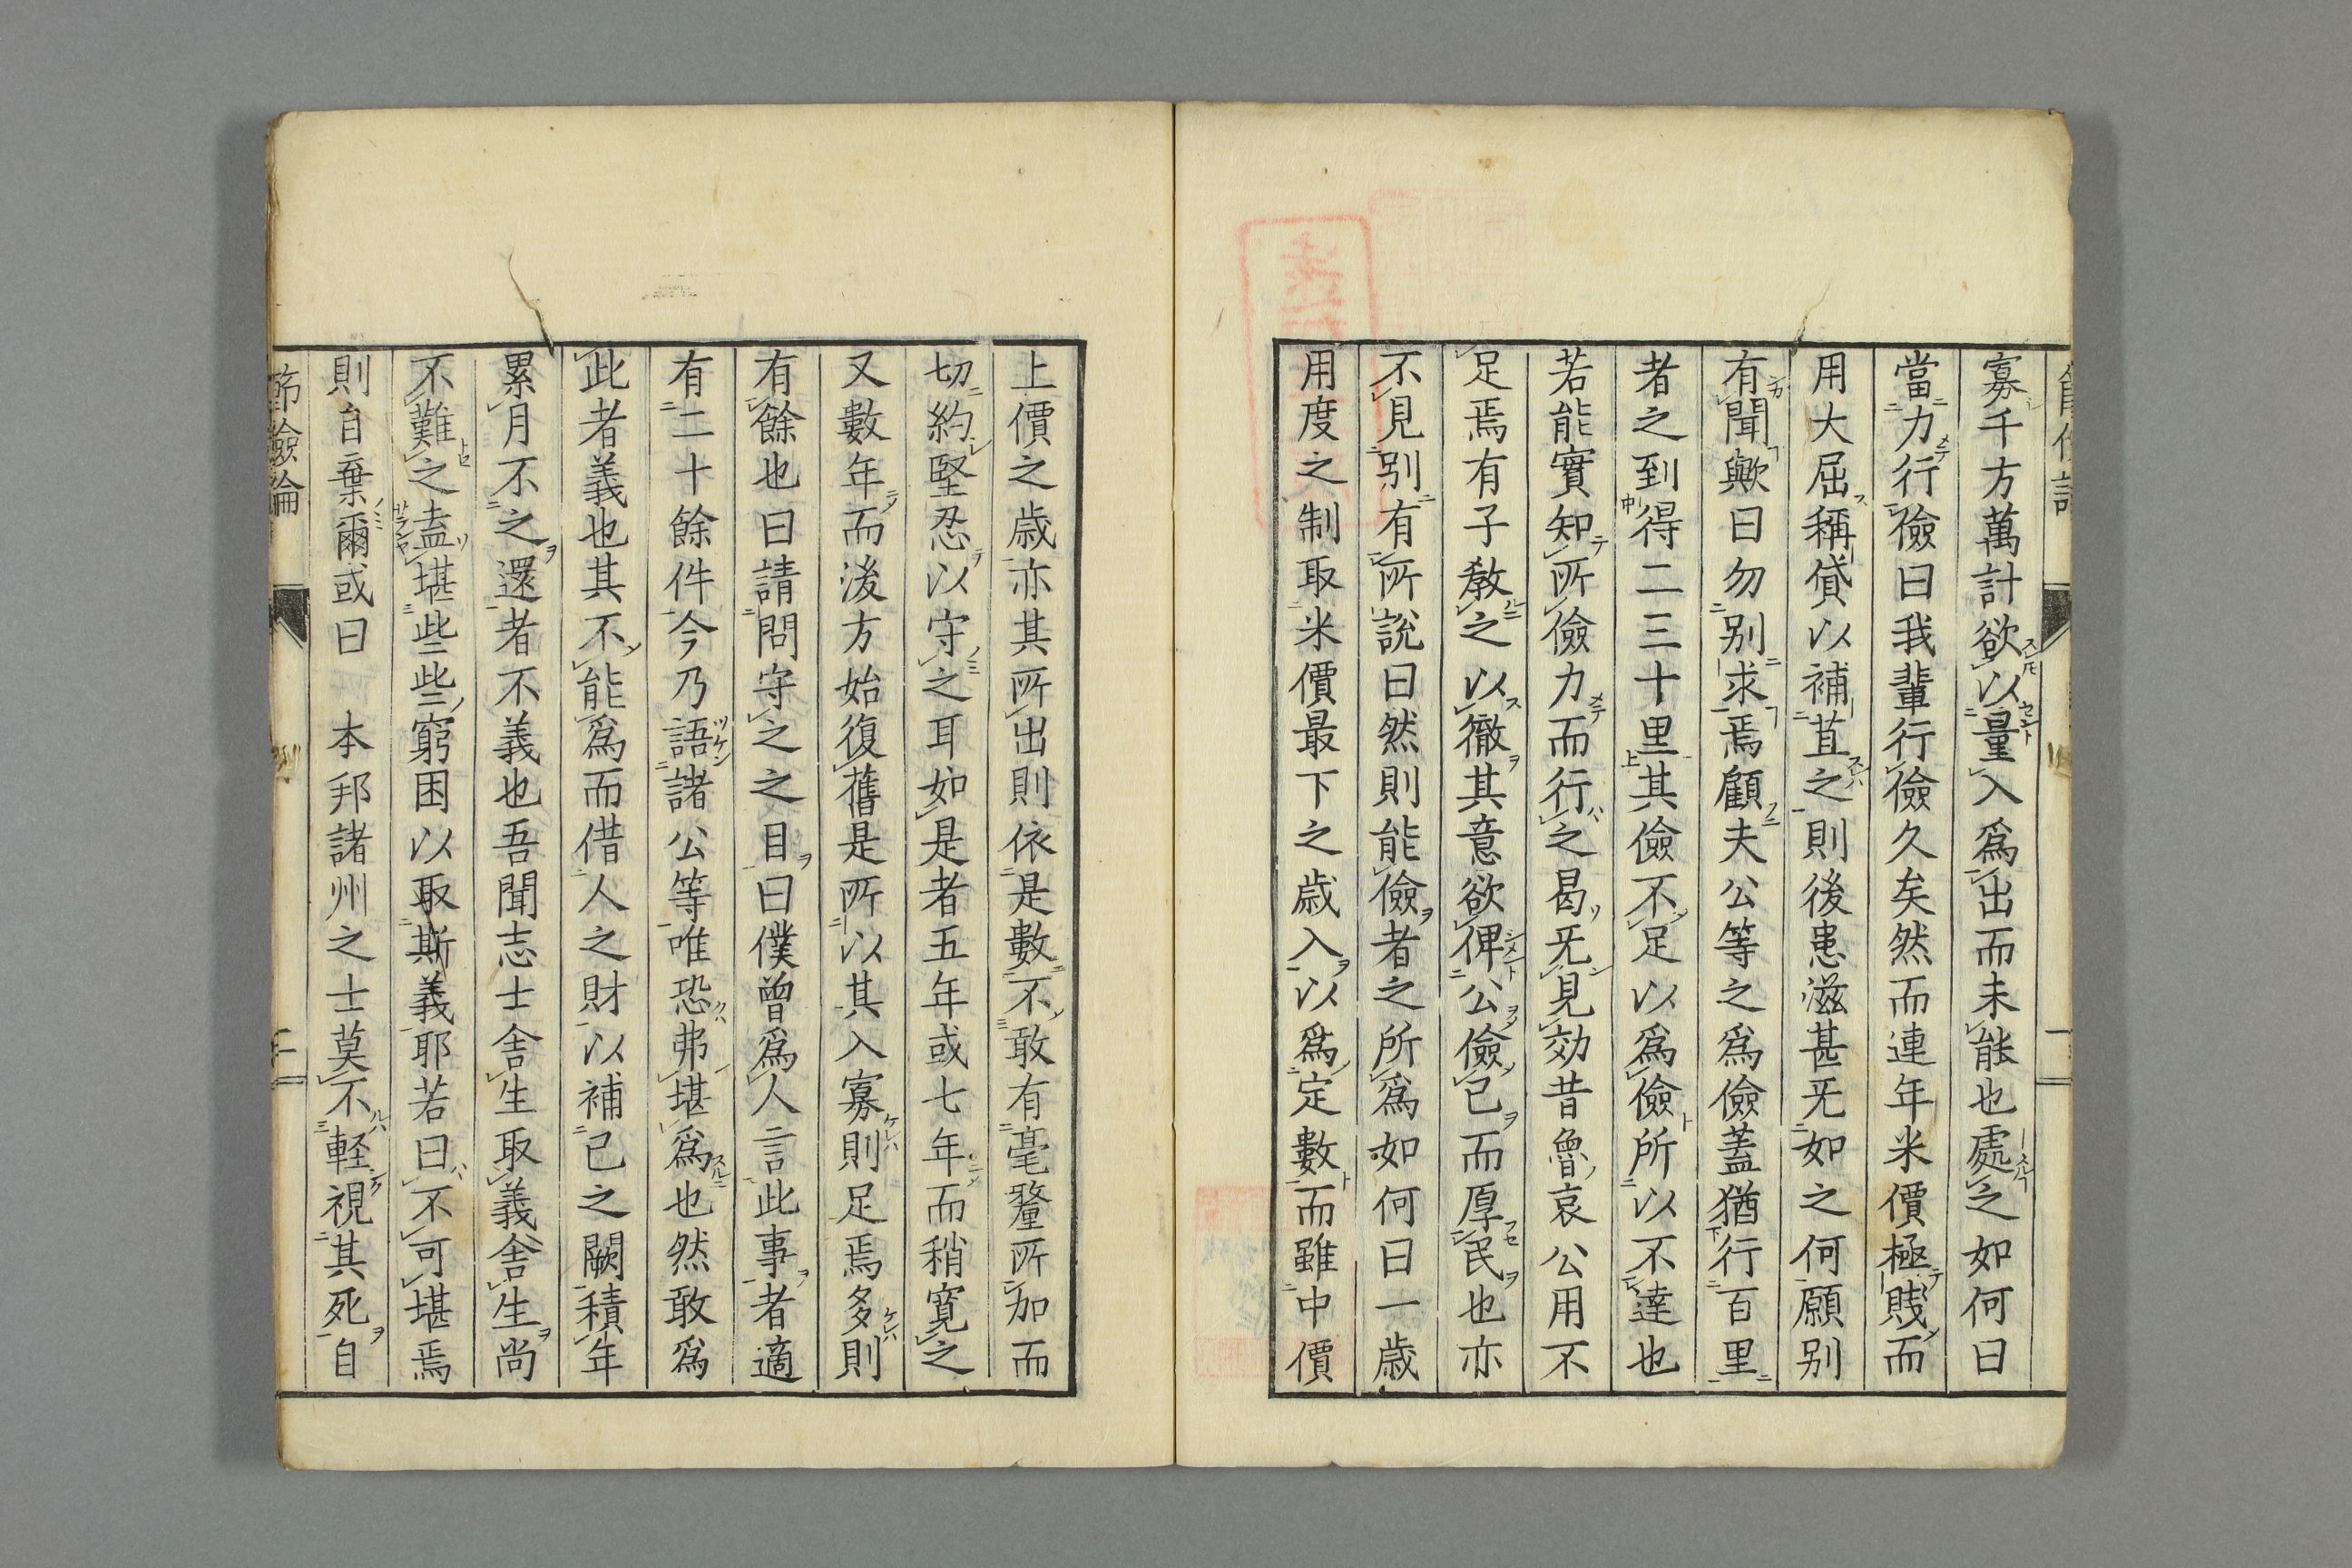 寡千方萬計欲以量入爲出而未能也處之如何曰
當力行儉曰我輩行儉久矣然而連年米價極賤而
用大屈稱貸以補苴之則後患滋甚旡如之何願别
有聞歟曰勿别求焉顧夫公等之爲儉蓋猶行百里
者之到得二三十里其儉不足以爲儉所以不達也
若能實知所儉力而行之曷旡見効昔魯哀公用不
足焉有子教之以徹其意欲俾公儉己而厚民也亦
不見别有所説曰然則能儉者之所爲如何曰一歳
用度之制取米價最下之歳入以爲定數而雖中價
上價之歳亦其所出則依是數不敢有毫釐所加而
切約堅忍以守之耳如是者五年或七年而稍寛之
又數年而後方始復舊是所以其入寡則足焉多則
有餘也曰請問守之之目曰僕曾爲人言此事者適
有二十餘件今乃語諸公等唯恐弗堪爲也然敢爲
此者義也其不能爲而借人之財以補己之闕積年
累月不之還者不義也吾聞志士舍生取義舍生尚
不難之盍堪些些窮困以取斯義耶若曰不可堪焉
則自棄爾或曰 本邦諸州之士莫不軽視其死自
節儉論